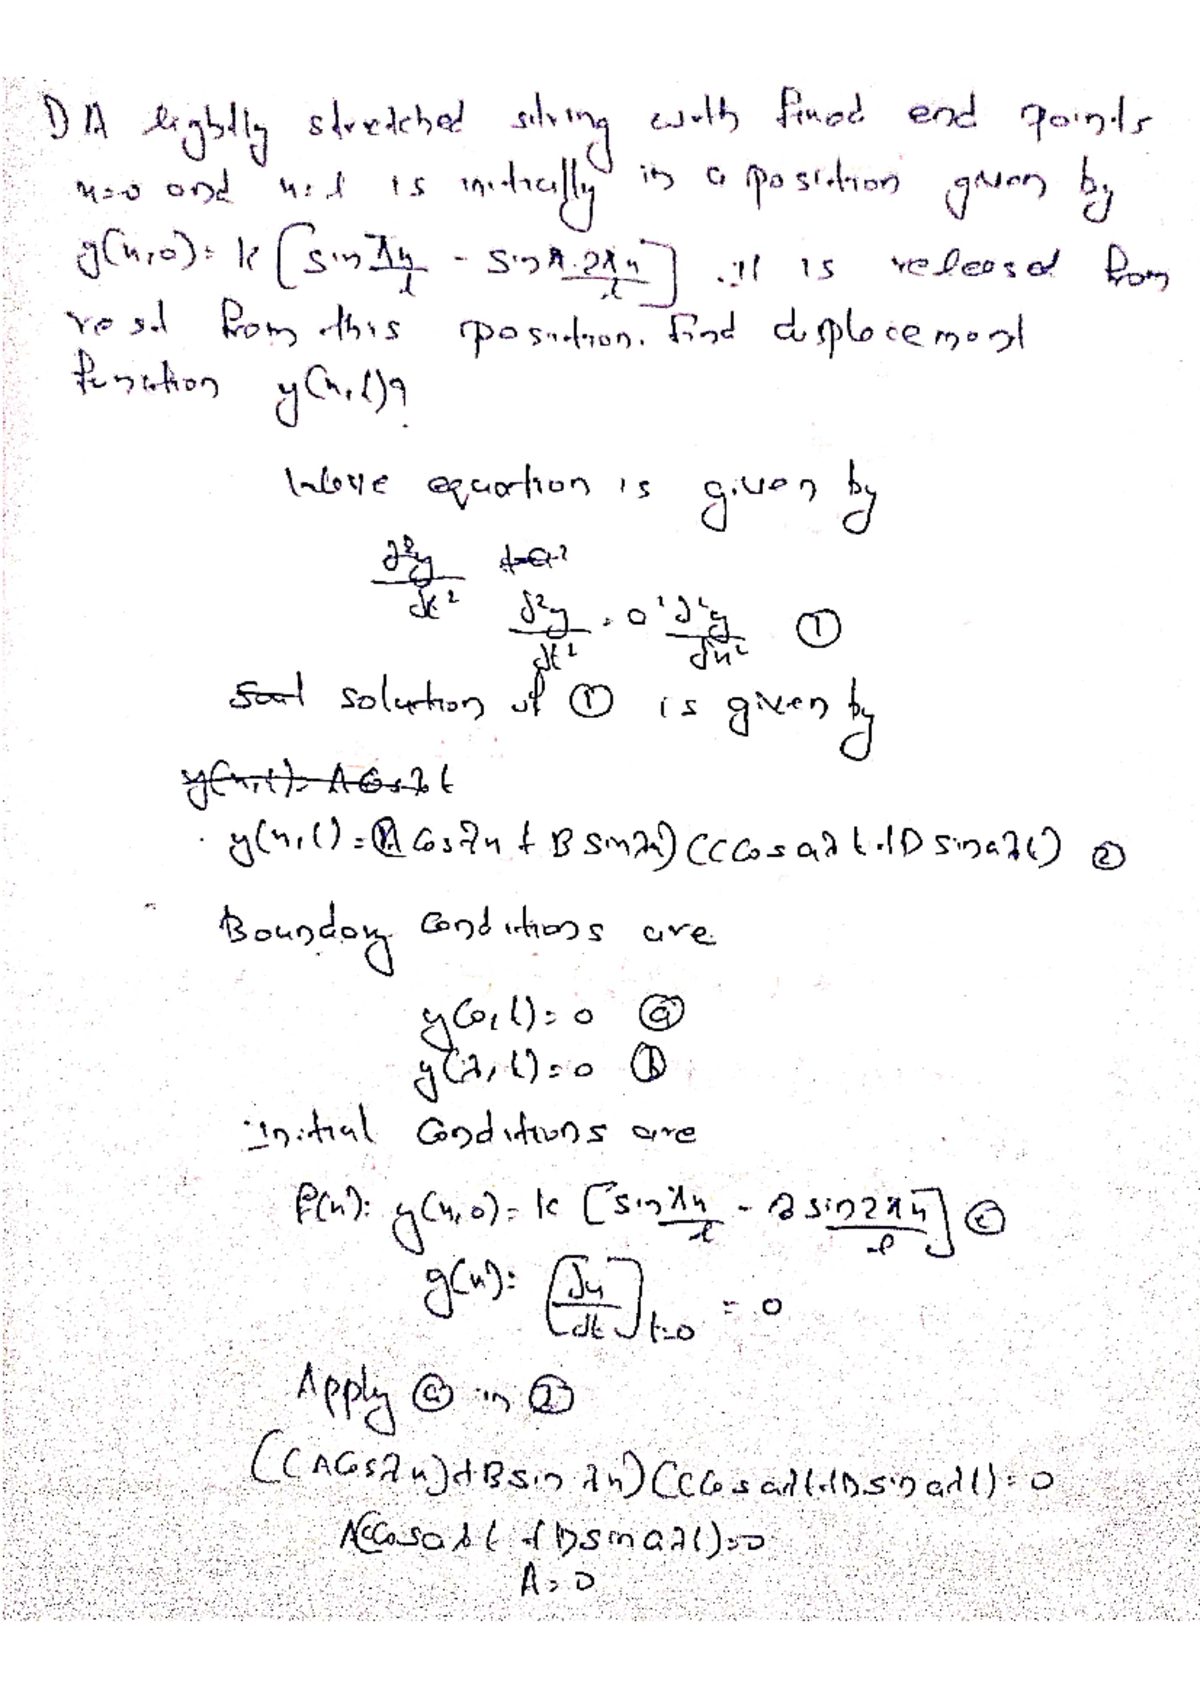 1) A tightly stretched string with fixed end points
x=0 and x=l is initially in a position given by
y(x,0)= k [sin πx/l - sin 2πx/l] . It is released from
rest from this position. find displacement
function y(x,t)?
Wave equation is given by
∂²y/∂x²
∂²y/∂t² = a² ∂²y/∂x² ①
solution of ① is given by
y(x,t)= A Cosλt
y(x,t)=(A Cosλx + B Sinλx) (C Cos aλt + D sin aλt) ②
Boundary Conditions are
y(0,t)=0 ⓐ
y(λ,t)=0 ⓑ
Initial Conditions are
f(x): y(x,0)= k [sin πx/l - 2 sin 2πx/l] ⓒ
g(x): [∂y/∂t] t=0 = 0
Apply ⓐ in ②
((A Cosλx)+B sin λx) (C Cos aλt + D sin aλt)=0
A(C Cos aλt + D sin aλt)=0
A=0